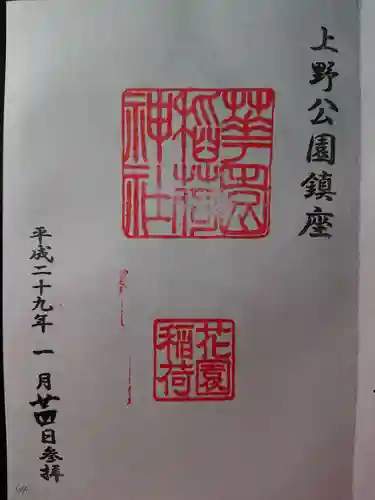 上野公園鎮座
華園
稲荷
神社
花園
稲荷
平成二十九年一月廿四日参拝